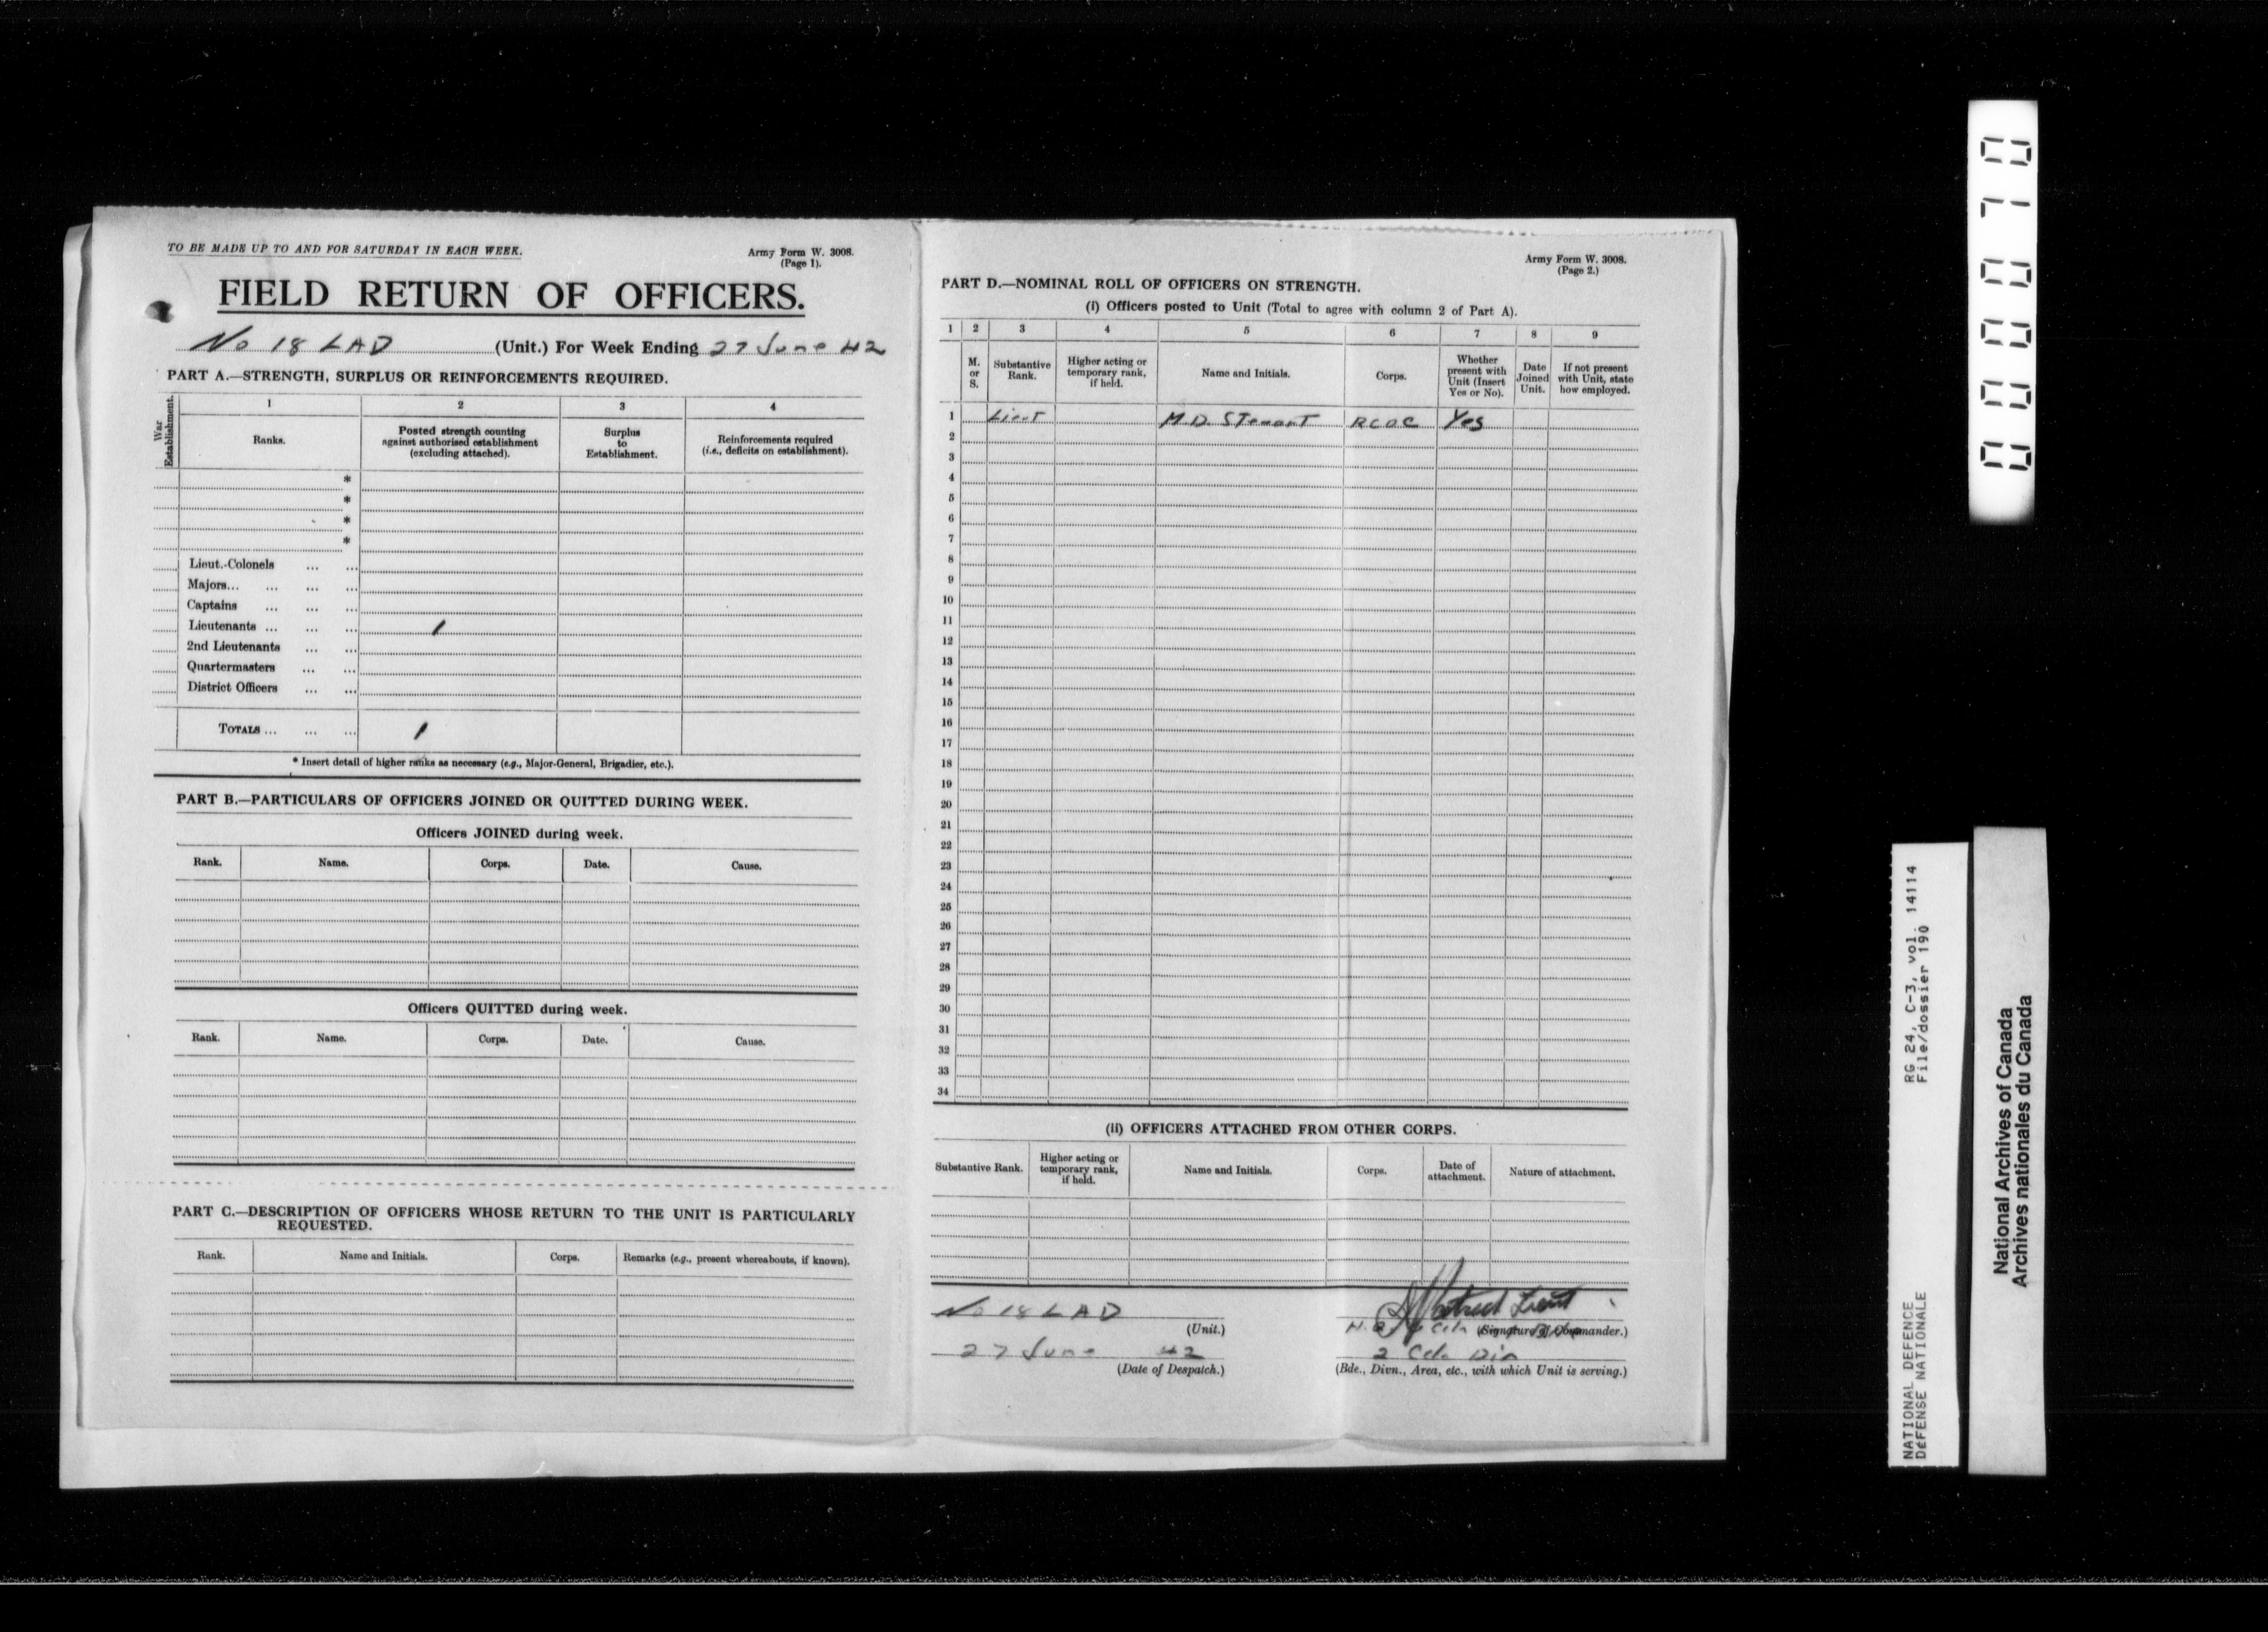 TO BE MADE UP TO AND FOR SATURDAY IN EACH WEEK.
Army Form W. 3008.
(Page 1).
FIELD RETURN OF OFFICERS.
No 18 LAD (Unit.) For Week Ending 27 June 42
PART A.—STRENGTH, SURPLUS OR REINFORCEMENTS REQUIRED.
War Establishment.
1 2 3 4
Ranks.
Posted strength counting against authorised establishment (excluding attached).
Surplus to Establishment.
Reinforcements required (i.e., deficits on establishment).
*
*
*
*
Lieut.-Colonels ... ...
Majors... ... ... ...
Captains ... ... ...
Lieutenants ... ... ... 1
2nd Lieutenants ... ...
Quartermasters ... ...
District Officers ... ...
TOTALS ... ... ... 1
* Insert detail of higher ranks as necessary (e.g., Major-General, Brigadier, etc.).
PART B.—PARTICULARS OF OFFICERS JOINED OR QUITTED DURING WEEK.
Officers JOINED during week.
Rank. Name. Corps. Date. Cause.
Officers QUITTED during week.
Rank. Name. Corps. Date. Cause.
PART C.—DESCRIPTION OF OFFICERS WHOSE RETURN TO THE UNIT IS PARTICULARLY
REQUESTED.
Rank. Name and Initials. Corps. Remarks (e.g., present whereabouts, if known).
Army Form W. 3008.
(Page 2.)
PART D.—NOMINAL ROLL OF OFFICERS ON STRENGTH.
(i) Officers posted to Unit (Total to agree with column 2 of Part A).
1 2 3 4 5 6 7 8 9
M. or S.
Substantive Rank.
Higher acting or temporary rank, if held.
Name and Initials.
Corps.
Whether present with Unit (Insert Yes or No).
Date Joined Unit.
If not present with Unit, state how employed.
1 Lieut M.D. Stewart RCOC Yes
2
3
4
5
6
7
8
9
10
11
12
13
14
15
16
17
18
19
20
21
22
23
24
25
26
27
28
29
30
31
32
33
34
(ii) OFFICERS ATTACHED FROM OTHER CORPS.
Substantive Rank.
Higher acting or temporary rank, if held.
Name and Initials.
Corps.
Date of attachment.
Nature of attachment.
No 18 LAD
(Unit.)
27 June 42
(Date of Despatch.)
Lieut
(Signature of Commander.)
2 Cdn Div
(Bde., Divn., Area, etc., with which Unit is serving.)
0000070
RG 24, C-3, vol. 14114
File/dossier 190
NATIONAL DEFENCE
DÉFENSE NATIONALE
National Archives of Canada
Archives nationales du Canada